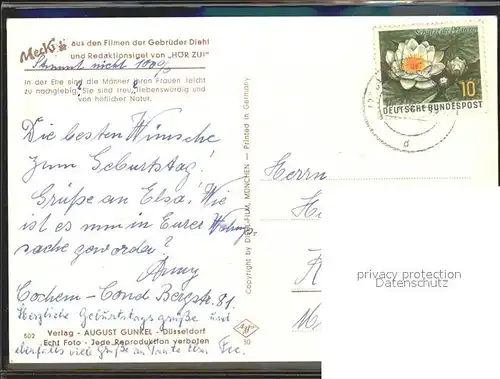 Mecki aus den Filmen der Gebrüder Diehl
und Redaktionsigel von „HÖR ZU!"
Stimmt nicht 100%
In der Ehe sind die Männer ihren Frauen leicht
zu nachgiebig. Sie sind treu, liebenswürdig und
von höflicher Natur.
Die besten Wünsche
zum Geburtstag!
Grüße an Elsa. Wie
ist es nun in Eurer Wohnungs-
sache geworden?
Cochem-Cond Bergstr. 81.
Herzliche Geburtstagsgrüße und
502 Verlag - AUGUST GUNKEL - Düsseldorf 50
Echt Foto - Jede Reproduktion verboten
ebenfalls viele Grüße an Tante
Copyright by DIEHL-FILM, MÜNCHEN - Printed in Germany
10
DEUTSCHE BUNDESPOST
d
Herrn
privacy protection
Datenschutz